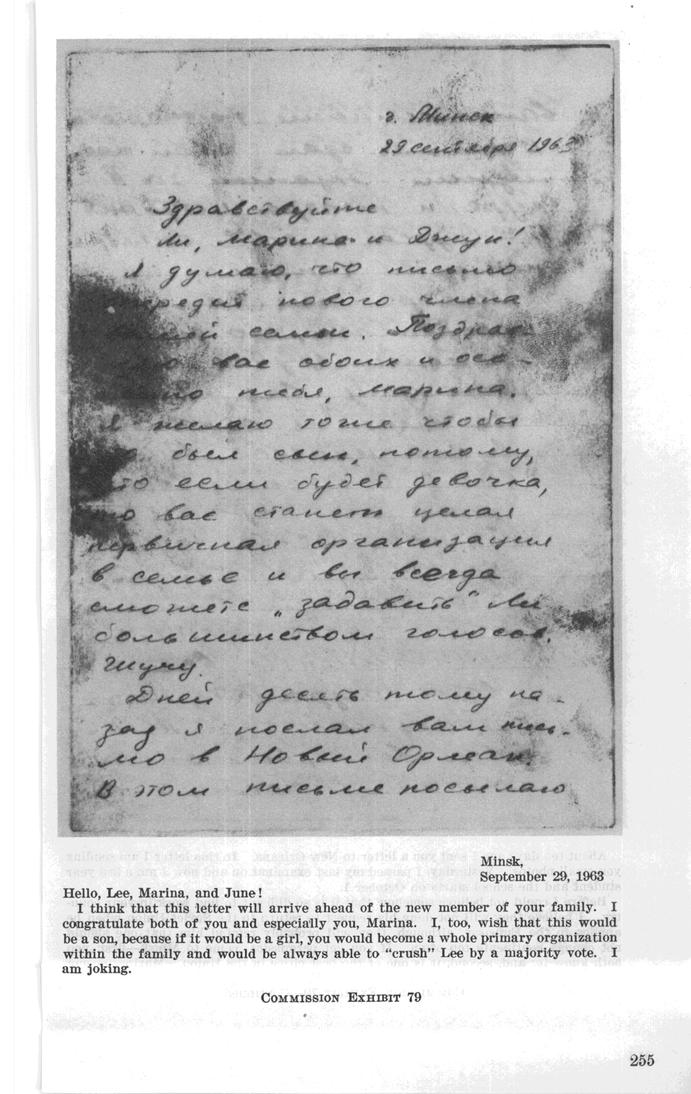 г. Минск
29 сентября 1963
Здравствуйте
Ли, Марина и Джун!
Я думаю, что письмо
опередит нового члена
вашей семьи. Поздрав-
ляю вас обоих и осо-
бенно тебя, Марина.
Я желаю тоже чтобы
был сын, потому,
что если будет девочка,
то вас станет целая
первичная организация
в семье и вы всегда
сможете „задавить" Ли
большинством голосов.
Шучу.
Дней десять тому на-
зад я послал вам пись-
мо в Новый Орлеан.
В этом письме посылаю
Minsk,
September 29, 1963
Hello, Lee, Marina, and June!
I think that this letter will arrive ahead of the new member of your family. I
congratulate both of you and especially you, Marina. I, too, wish that this would
be a son, because if it would be a girl, you would become a whole primary organization
within the family and would be always able to “crush” Lee by a majority vote. I
am joking.
COMMISSION EXHIBIT 79
255